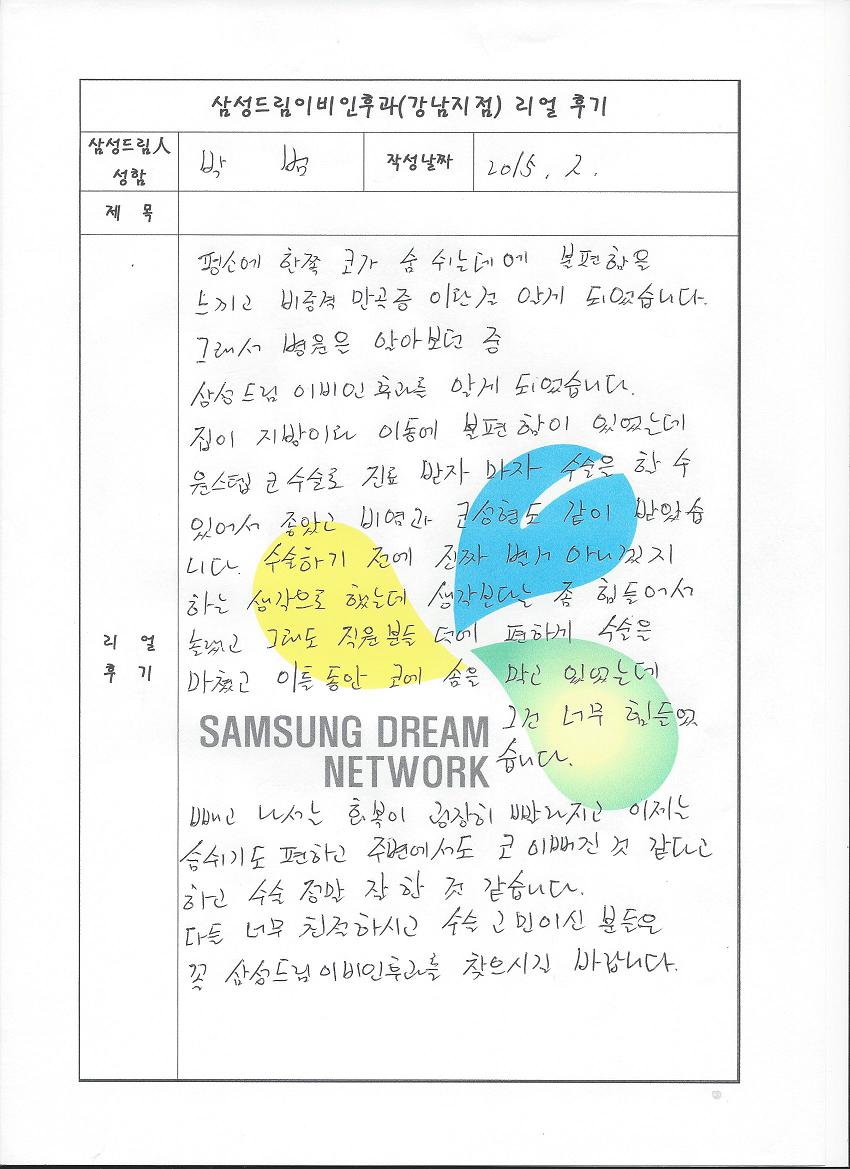 삼성드림이비인후과(강남지점) 리얼 후기
삼성드림人 성함
박 범
작성날짜
2015. 2.
제 목
리 얼 후 기
평소에 한쪽 코가 숨 쉬는데에 불편함을
느끼고 비중격 만곡증 이란걸 알게 되었습니다.
그래서 병원은 알아보던 중
삼성드림 이비인후과를 알게 되었습니다.
집이 지방이라 이동에 불편함이 있었는데
원스텝 코 수술로 진료 받자 마자 수술을 할 수
있어서 좋았고 비염과 코성형도 같이 받았습
니다. 수술하기 전에 진짜 별거 아니겠지
하는 생각으로 했는데 생각보다는 좀 힘들어서
놀랐고 그래도 직원분들 덕에 편하게 수술은
마쳤고 이틀동안 코에 솜을 막고 있었는데
그건 너무 힘들었
습니다.
SAMSUNG DREAM
NETWORK
빼고 나서는 회복이 굉장히 빨라지고 이제는
숨쉬기도 편하고 주변에서도 코 이뻐진 것 같다고
하고 수술 정말 잘 한 것 같습니다.
다들 너무 친절하시고 수술 고민이신 분들은
꼭 삼성드림이비인후과를 찾으시길 바랍니다.